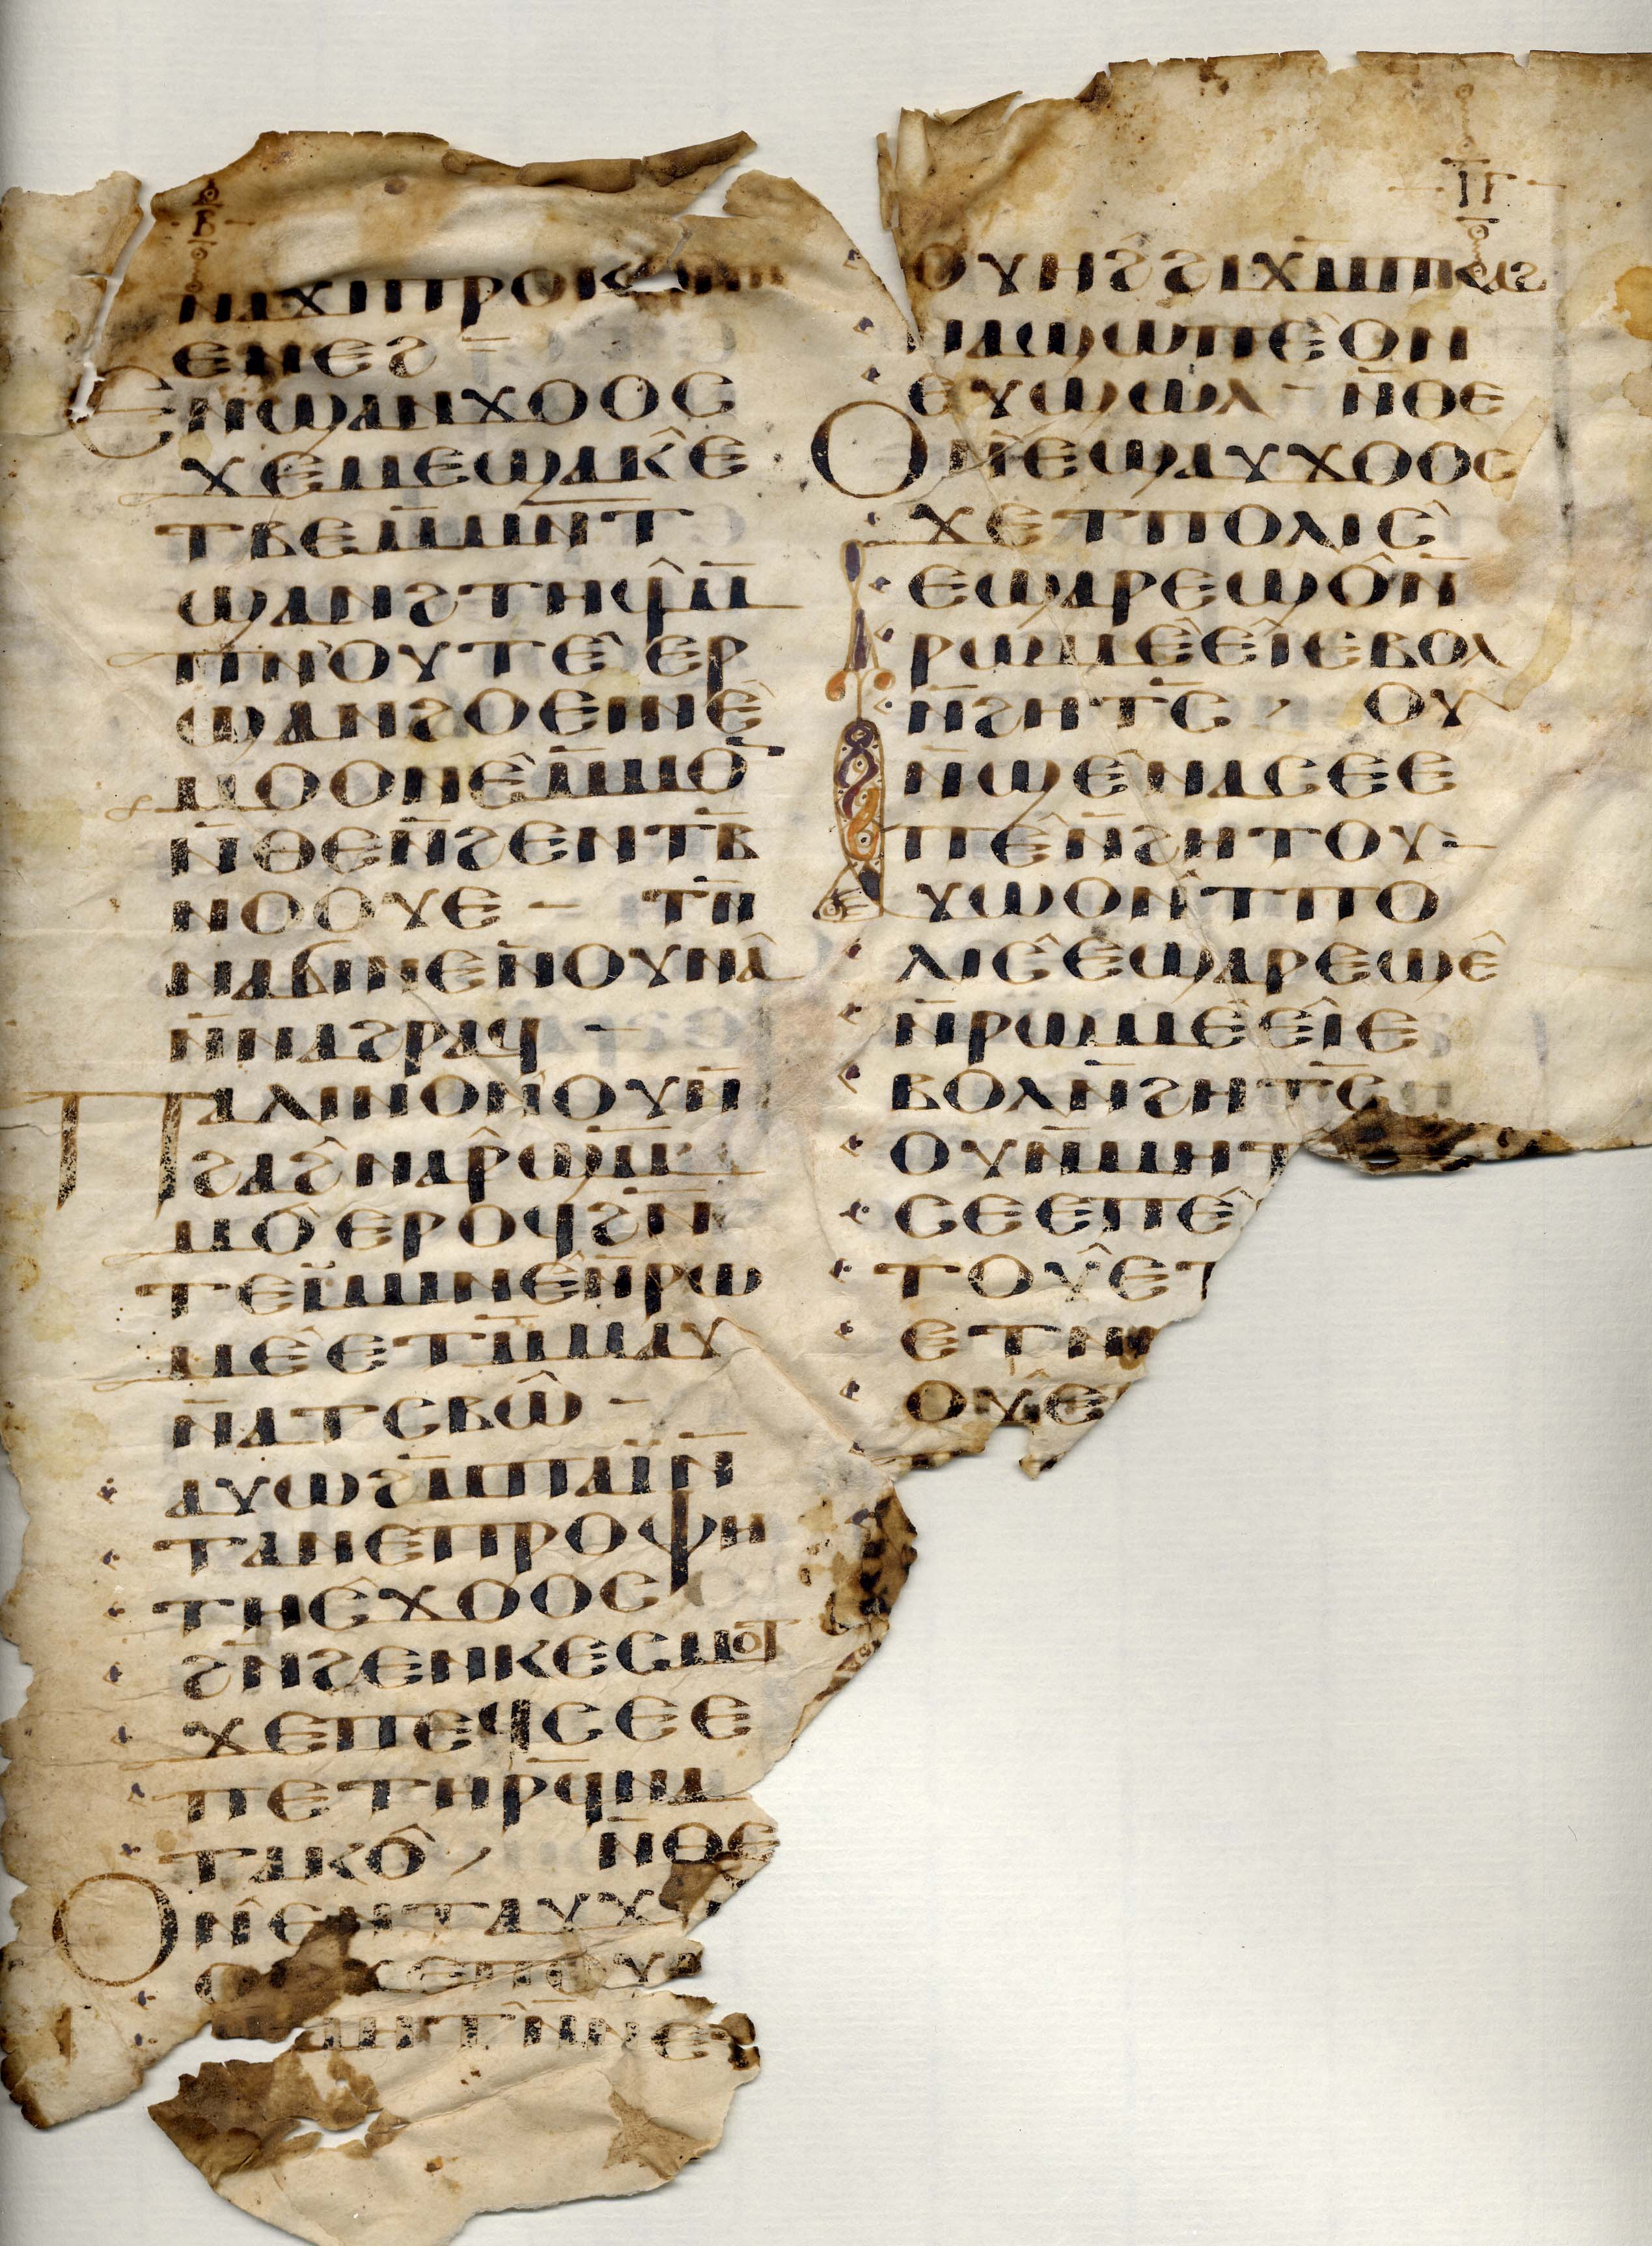 ⲃ
ⲛⲁϫⲓⲡⲣⲟⲕⲟⲡⲧⲉ
ⲉⲛⲉϩ –
ⲉⲛϣⲁⲛϫⲟⲟⲥ
ϫⲉⲙⲉϣⲁⲕⲉ
ⲧⲃⲉⲙ̄ⲙⲛ̄ⲧ
ϣⲁⲛϩⲧⲏϥⲙ̄
ⲡⲛⲟⲩⲧⲉ ⲉⲣ
ϣⲁⲛϩⲟⲉⲓⲛⲉ
ⲙⲟⲟⲛⲉⲙ̄ⲙⲟⲟⲩ
ⲛ̄ⲑⲉⲛ̄ϩⲉⲛⲧⲃ̄
ⲛⲟⲟⲩⲉ – ⲧⲛ̄
ⲛⲁϭⲓⲛⲉⲛ̄ⲟⲩⲛⲁ
ⲛ̄ⲛⲁϩⲣⲁϥ –
ⲡⲁⲗⲓⲛⲟⲛⲟⲩⲛ̄
ϩⲁϩⲛⲁⲣ̄ϣⲙ̄
ⲙⲟ̂ⲉⲣⲟϥϩⲛ̄
ⲧⲉⲓ̈ⲙⲓⲛⲉⲛ̄ⲣⲱ
ⲙⲉⲉⲧⲙ̄ⲙⲁⲩ
ⲛ̄ⲁⲧⲥⲃⲱ̂ –
ⲁⲩⲱϩⲙ̄ⲡⲁⲓ̈ⲛ̄
ⲧⲁⲛⲉⲡⲣⲟⲫⲏ
ⲧⲏⲥϫⲟⲟⲥ
ϩⲛ̄ϩⲉⲛⲕⲉⲥⲙⲟⲧ
ϫⲉⲡⲉϥⲥⲉⲉ
ⲡⲉⲧⲏⲣϥ̄ⲛⲁ
ⲧⲁⲕⲟ̂ ⸝ ⲛ̄ⲑⲉ
ⲟⲛⲉⲛⲧⲁⲩϫ
ⲓ̅ⲅ̅
ⲟⲩⲏϩϩⲓϫⲙ̄ⲡⲕⲁϩ
ⲛⲁϣⲱⲡⲉⲟⲛ
ⲉⲩϣⲱⲗ – ⲛ̄ⲑⲉ
ⲟⲛⲉϣⲁⲩϫⲟⲟⲥ
ϫⲉⲧⲡⲟⲗⲓⲥ
ⲉϣⲁⲣⲉϣⲟ̂ⲛ̄
ⲣⲱⲙⲉⲉⲓⲉⲃⲟⲗ
ⲛ̄ϩⲏⲧⲥ̄ ⸝ ⲟⲩ
ⲛ̄ϣⲉⲛⲁⲥⲉⲉ
ⲡⲉⲛ̄ϩⲏⲧⲟⲩ –
ⲁⲩⲱⲟⲛⲧⲡⲟ
ⲗⲓⲥⲉϣⲁⲣⲉϣⲉ
ⲛ̄ⲣⲱⲙⲉⲉⲓⲉ
ⲃⲟⲗⲛ̄ϩⲏⲧⲥ̄
ⲟⲩⲛ̄ⲙⲏⲧ
ⲥⲉⲉⲡⲉ
ⲧⲟⲩⲉⲧ
ⲉⲧⲙ
ⲟⲩⲉ